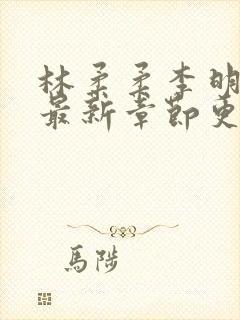 林柔柔李明
最新章節更
馬陟